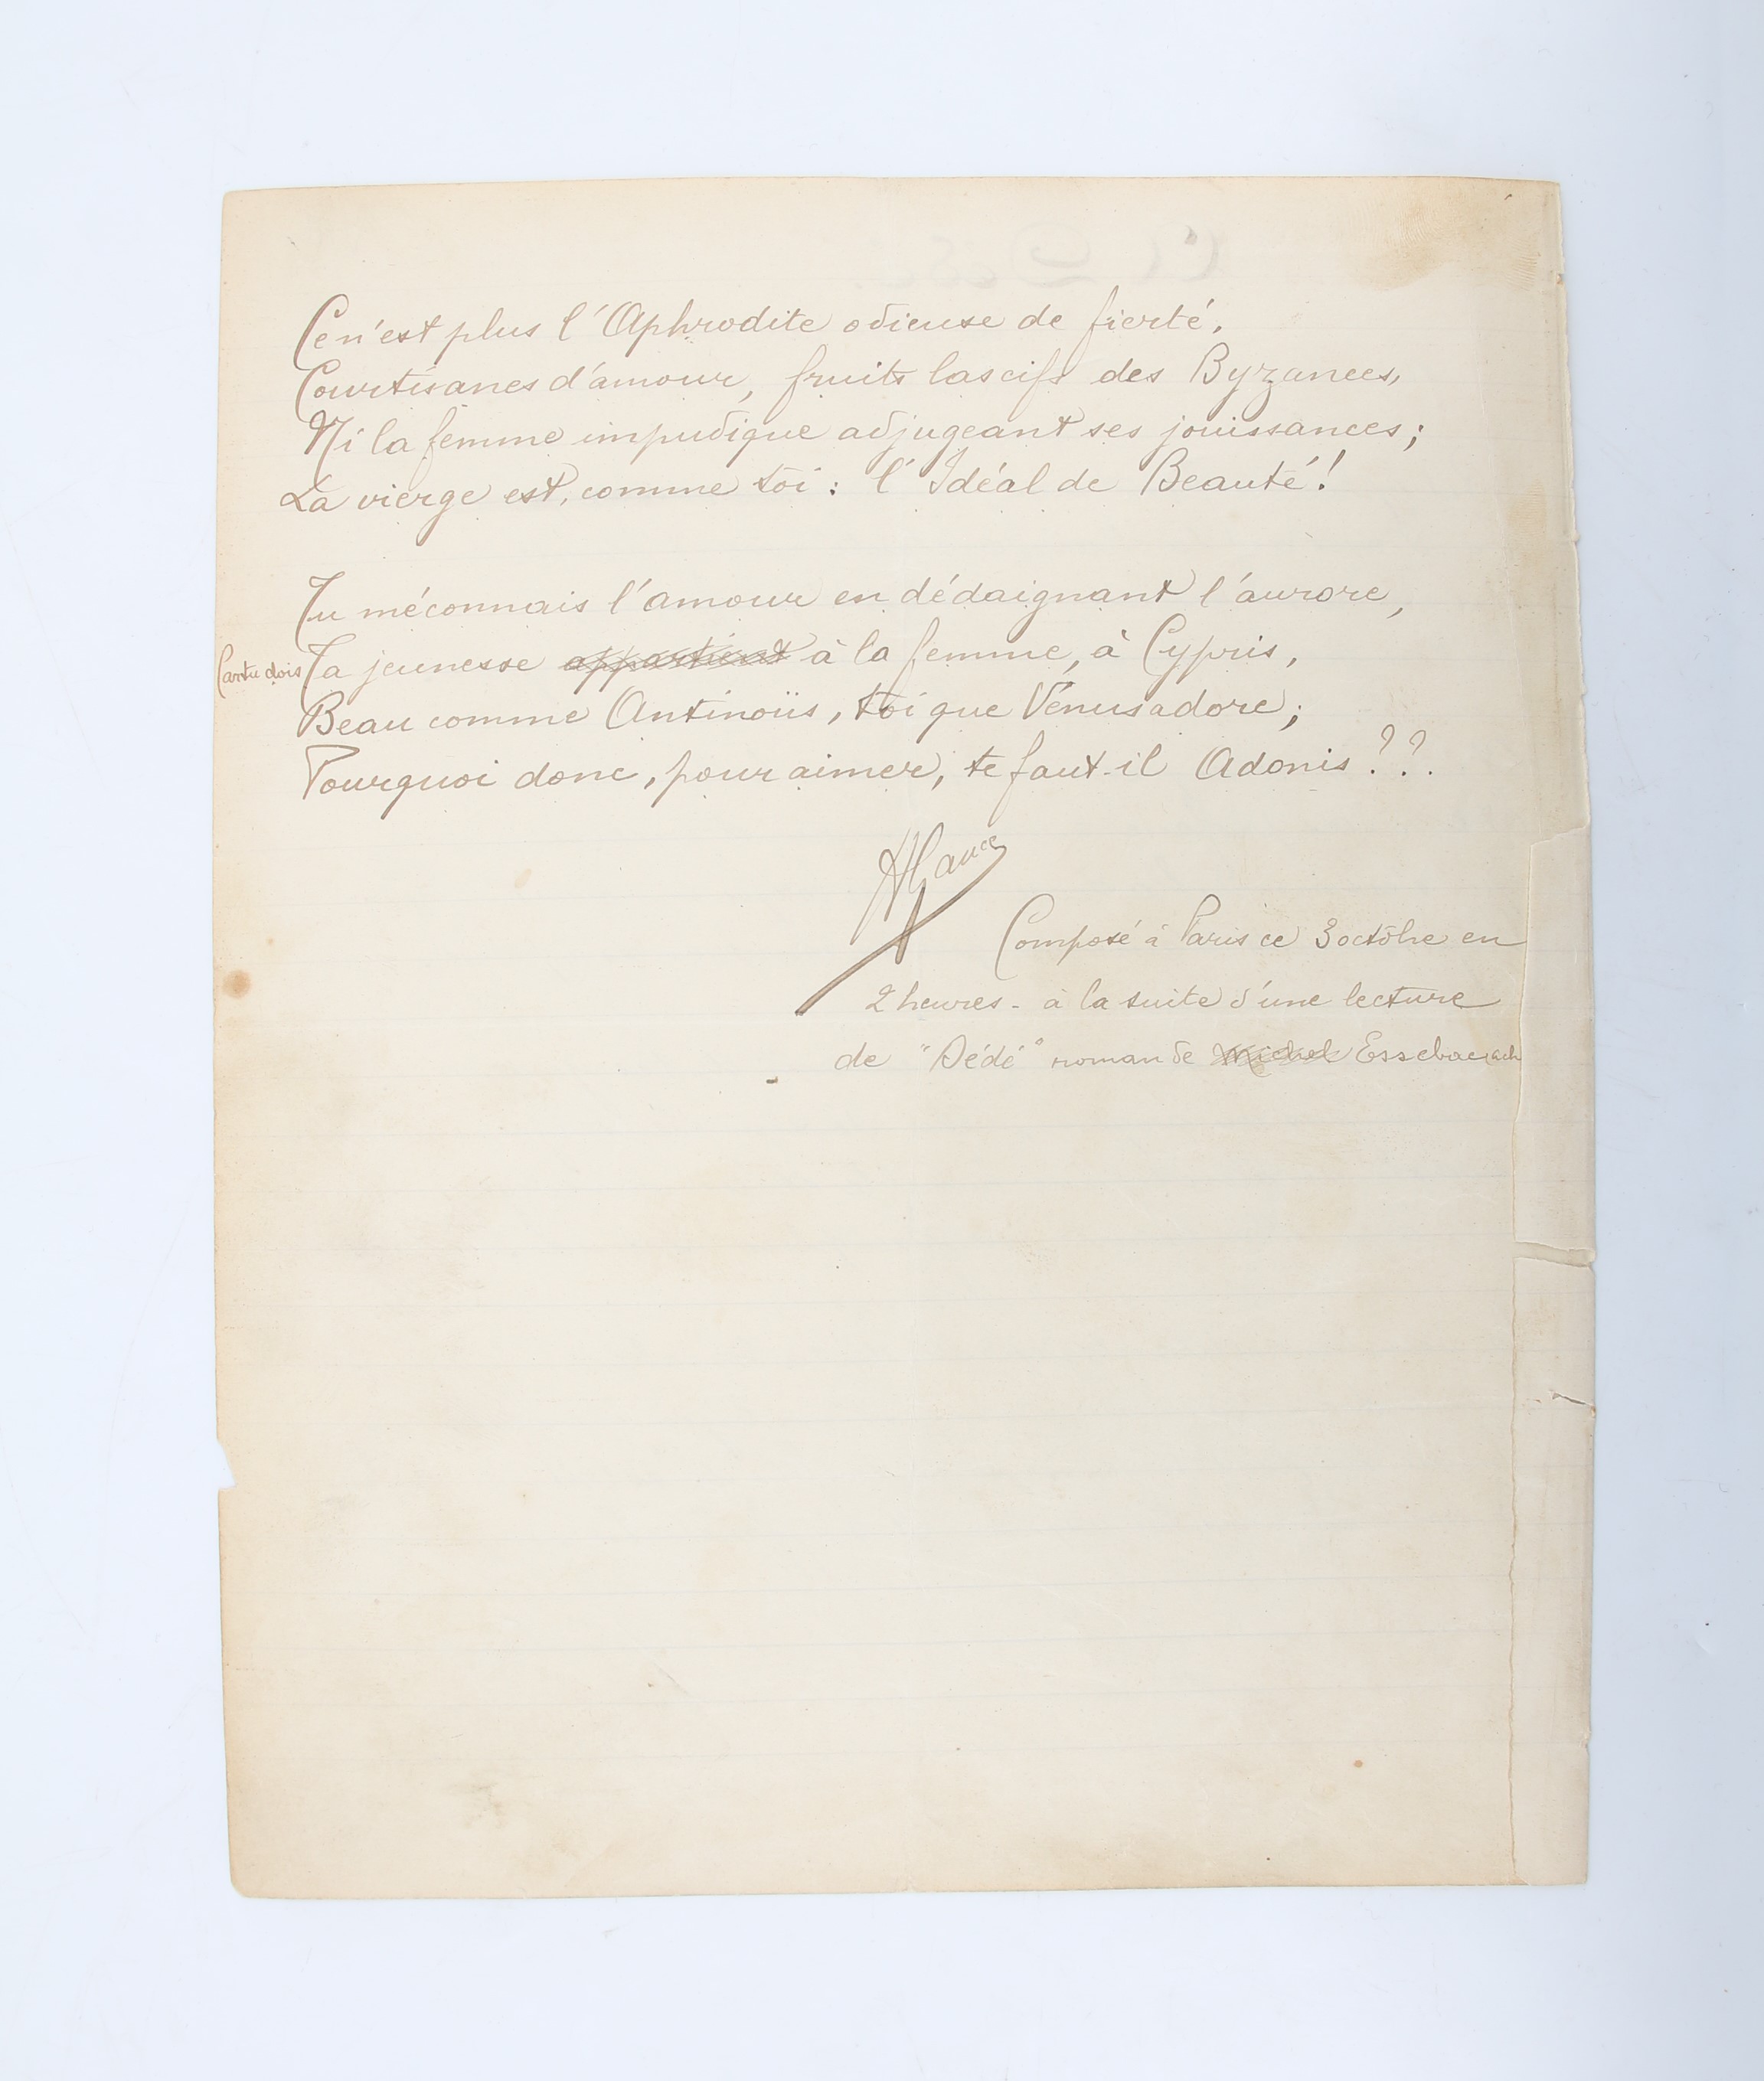 Ce n'est plus l'Aphrodite odieuse de fierté,
Courtisanes d'amour, fruits lascifs des Byzances,
Ni la femme impudique adjugeant ses jouissances ;
La vierge est, comme toi : l'Idéal de Beauté !
Tu méconnais l'amour en dédaignant l'aurore,
Car tu dois Ta jeunesse appartient à la femme, à Cypris,
Beau comme Antinoüs, toi que Vénus adore ;
Pourquoi donc, pour aimer, te faut-il Adonis ? ? .
Composé à Paris ce 3 octobre en
2 heures - à la suite d'une lecture
de "Dédé" roman de Michel Essebac